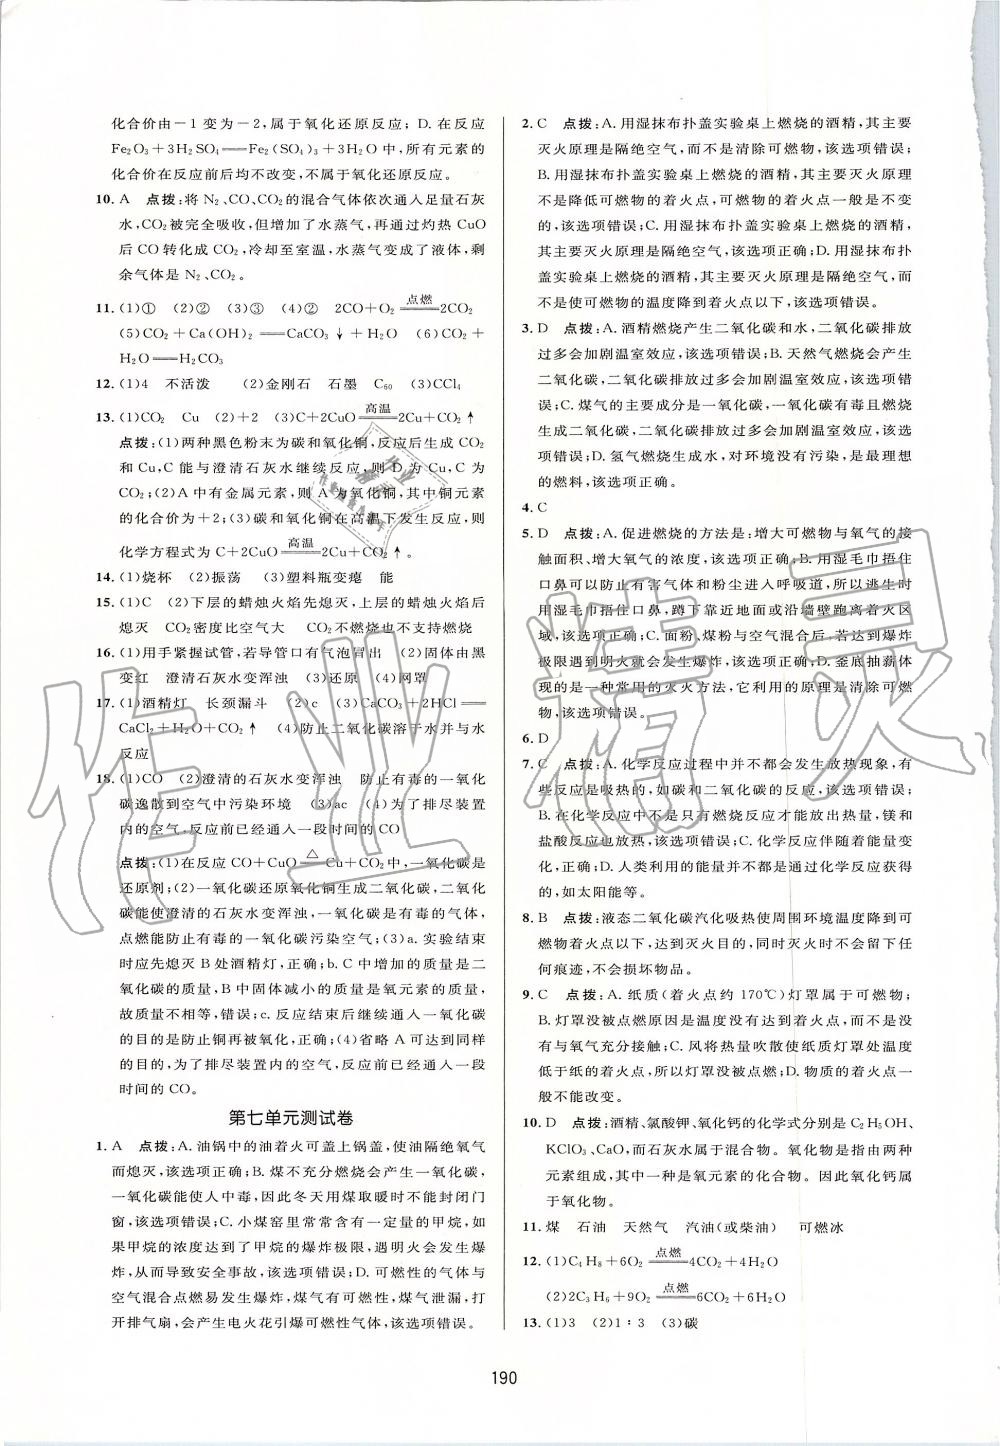 化合价由－1变为－2,属于氧化还原反应;D.在反应
Fe₂O₃＋3H₂SO₄══Fe₂(SO₄)₃＋3H₂O中,所有元素的
化合价在反应前后均不改变,不属于氧化还原反应。
10. A 点拨:将N₂、CO、CO₂的混合气体依次通入足量石灰
水,CO₂被完全吸收,但增加了水蒸气,再通过灼热CuO
后CO转化成CO₂,冷却至室温,水蒸气变成了液体,剩
余气体是N₂、CO₂。
11. (1)① (2)② (3)③ (4)② 2CO＋O₂ 点燃══ 2CO₂
(5)CO₂＋Ca(OH)₂══CaCO₃↓＋H₂O (6)CO₂＋
H₂O══H₂CO₃
12. (1)4 不活泼 (2)金刚石 石墨 C₆₀ (3)CCl₄
13. (1)CO₂ Cu (2)＋2 (3)C＋2CuO 高温══ 2Cu＋CO₂↑
点拨:(1)两种黑色粉末为碳和氧化铜,反应后生成CO₂
和Cu,C能与澄清石灰水继续反应,则D为Cu、C为
CO₂;(2)A中有金属元素,则A为氧化铜,其中铜元素
的化合价为＋2;(3)碳和氧化铜在高温下发生反应,则
化学方程式为C＋2CuO 高温══ 2Cu＋CO₂↑。
14. (1)烧杯 (2)振荡 (3)塑料瓶变瘪 能
15. (1)C (2)下层的蜡烛火焰先熄灭,上层的蜡烛火焰后
熄灭 CO₂密度比空气大 CO₂不燃烧也不支持燃烧
16. (1)用手紧握试管,若导管口有气泡冒出 (2)固体由黑
变红 澄清石灰水变浑浊 (3)还原 (4)网罩
17. (1)酒精灯 长颈漏斗 (2)c (3)CaCO₃＋2HCl══
CaCl₂＋H₂O＋CO₂↑ (4)防止二氧化碳溶于水并与水
反应
18. (1)CO (2)澄清的石灰水变浑浊 防止有毒的一氧化
碳逸散到空气中污染环境 (3)ac (4)为了排尽装置
内的空气,反应前已经通入一段时间的CO
点拨:(1)在反应CO＋CuO △══ Cu＋CO₂中,一氧化碳是
还原剂;(2)一氧化碳还原氧化铜生成二氧化碳,二氧化
碳能使澄清的石灰水变浑浊,一氧化碳是有毒的气体,
点燃能防止有毒的一氧化碳污染空气;(3)a.实验结束
时应先熄灭B处酒精灯,正确;b.C中增加的质量是二
氧化碳的质量,B中固体减小的质量是氧元素的质量,
故质量不相等,错误;c.反应结束后继续通入一氧化碳
的目的是防止铜再被氧化,正确;(4)省略A可达到同样
的目的,为了排尽装置内的空气,反应前已经通入一段
时间的CO。
第七单元测试卷
1. A 点拨:A.油锅中的油着火可盖上锅盖,使油隔绝氧气
而熄灭,该选项正确;B.煤不充分燃烧会产生一氧化碳,
一氧化碳能使人中毒,因此冬天用煤取暖时不能封闭门
窗,该选项错误;C.小煤窑里常含有一定量的甲烷,如
果甲烷的浓度达到了甲烷的爆炸极限,遇明火会发生爆
炸,从而导致安全事故,该选项错误;D.可燃性的气体与
空气混合点燃易发生爆炸,煤气有可燃性,煤气泄漏,打
开排气扇,会产生电火花引爆可燃性气体,该选项错误。
2. C 点拨:A.用湿抹布扑盖实验桌上燃烧的酒精,其主要
灭火原理是隔绝空气,而不是清除可燃物,该选项错误;
B.用湿抹布扑盖实验桌上燃烧的酒精,其主要灭火原理
不是降低可燃物的着火点,可燃物的着火点一般是不变
的,该选项错误;C.用湿抹布扑盖实验桌上燃烧的酒精,
其主要灭火原理是隔绝空气,该选项正确;D.用湿抹布扑
盖实验桌上燃烧的酒精,其主要灭火原理是隔绝空气,而
不是使可燃物的温度降到着火点以下,该选项错误。
3. D 点拨:A.酒精燃烧产生二氧化碳和水,二氧化碳排放
过多会加剧温室效应,该选项错误;B.天然气燃烧会产生
二氧化碳,二氧化碳排放过多会加剧温室效应,该选项错
误;C.煤气的主要成分是一氧化碳,一氧化碳有毒且燃烧
生成二氧化碳,二氧化碳排放过多会加剧温室效应,该选
项错误;D.氢气燃烧生成水,对环境没有污染,是最理想
的燃料,该选项正确。
4. C
5. D 点拨:A.促进燃烧的方法是:增大可燃物与氧气的接
触面积、增大氧气的浓度,该选项正确;B.用湿毛巾捂住
口鼻可以防止有害气体和粉尘进入呼吸道,所以逃生时
用湿毛巾捂住口鼻,蹲下靠近地面或沿墙壁跑离着火区
域,该选项正确;C.面粉、煤粉与空气混合后,若达到爆炸
极限遇到明火就会发生爆炸,该选项正确;D.釜底抽薪体
现的是一种常用的灭火方法,它利用的原理是清除可燃
物,该选项错误。
6. D
7. C 点拨:A.化学反应过程中并不都会发生放热现象,有
些反应是吸热的,如碳和二氧化碳的反应,该选项错误;
B.在化学反应中不是只有燃烧反应才能放出热量,镁和
盐酸反应也放热,该选项错误;C.化学反应伴随着能量变
化,正确;D.人类利用的能量并不都是通过化学反应获得
的,如太阳能等。
8. B 点拨:液态二氧化碳汽化吸热使周围环境温度降到可
燃物着火点以下,达到灭火目的,同时灭火时不会留下任
何痕迹,不会损坏物品。
9. C 点拨:A.纸质(着火点约170℃)灯罩属于可燃物;
B.灯罩没被点燃原因是温度没有达到着火点,而灯罩是
与氧气充分接触;C.风将热量吹散使纸质灯罩处温度
低于纸的着火点,所以灯罩没被点燃;D.物质的着火点一
般不能改变。
10. D 点拨:酒精、氯酸钾、氧化钙的化学式分别是C₂H₅OH、
KClO₃、CaO,而石灰水属于混合物。氧化物是指由两种
元素组成,其中一种是氧元素的化合物。因此氧化钙属
于氧化物。
11. 煤 石油 天然气 汽油(或柴油) 可燃冰
12. (1)C₄H₈＋6O₂ 点燃══ 4CO₂＋4H₂O
(2)2C₃H₆＋9O₂ 点燃══ 6CO₂＋6H₂O
13. (1)3 (2)1∶3 (3)碳
190
作业精灵